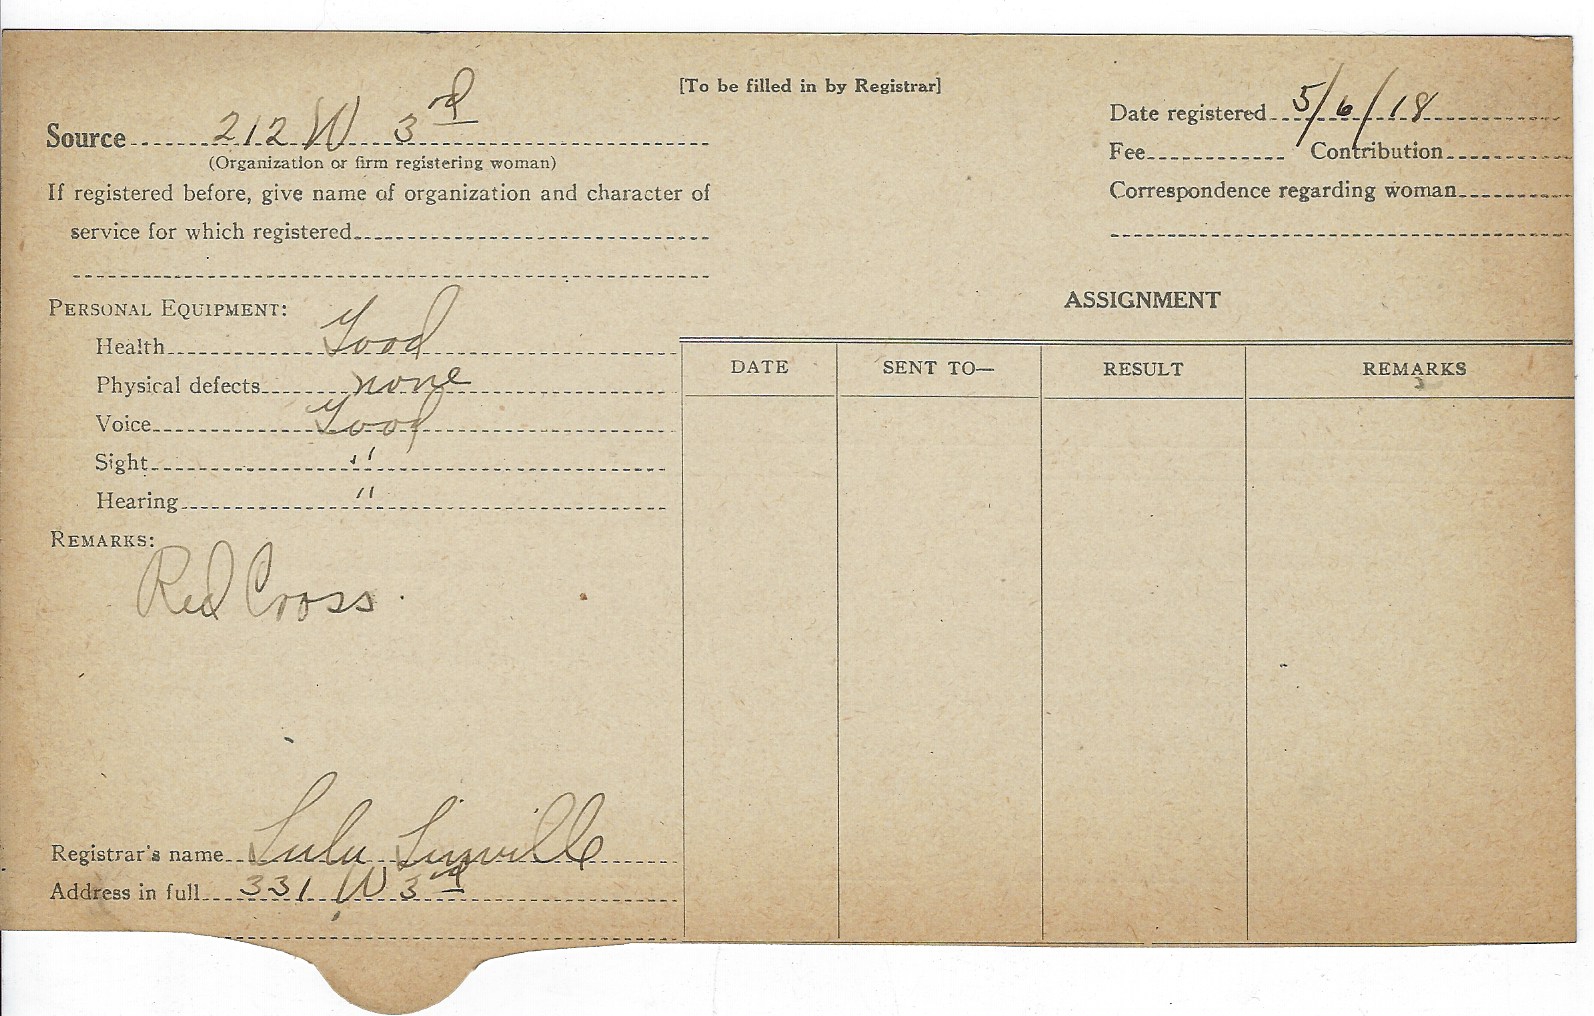 [To be filled in by Registrar]
Source 212 W 3rd
(Organization or firm registering woman)
If registered before, give name of organization and character of
service for which registered
Date registered 5/6/18
Fee Contribution
Correspondence regarding woman
PERSONAL EQUIPMENT:
Health Good
Physical defects none
Voice Good
Sight "
Hearing "
REMARKS:
Red Cross.
Registrar's name Lulu Linville
Address in full 331 W 3rd
ASSIGNMENT
DATE SENT TO— RESULT REMARKS